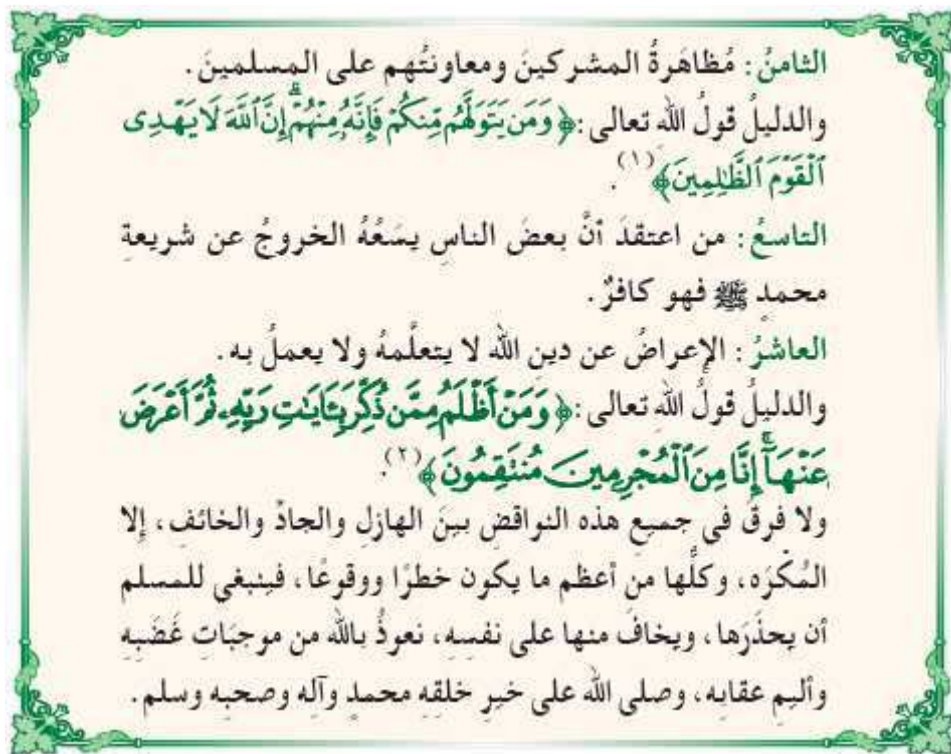 الثامنُ: مُظاهَرةُ المشركينَ ومعاونتُهم على المسلمينَ.
والدليلُ قولُ اللهِ تعالى: ﴿وَمَن يَتَوَلَّهُم مِّنكُمْ فَإِنَّهُۥ مِنْهُمْ ۗ إِنَّ ٱللَّهَ لَا يَهْدِى
ٱلْقَوْمَ ٱلظَّٰلِمِينَ﴾(١).
التاسعُ: من اعتقدَ أنَّ بعضَ الناسِ يسَعُهُ الخروجُ عن شريعةِ
محمدٍ ﷺ فهو كافرٌ.
العاشرُ: الإعراضُ عن دينِ اللهِ لا يتعلَّمهُ ولا يعملُ به.
والدليلُ قولُ اللهِ تعالى: ﴿وَمَنْ أَظْلَمُ مِمَّن ذُكِّرَ بِـَٔايَٰتِ رَبِّهِۦ ثُمَّ أَعْرَضَ
عَنْهَآ ۚ إِنَّا مِنَ ٱلْمُجْرِمِينَ مُنتَقِمُونَ﴾(٢).
ولا فرقَ في جميعِ هذه النواقضِ بينَ الهازلِ والجادِّ والخائفِ، إلا
المُكْرَه، وكلُّها من أعظمِ ما يكون خطرًا ووقوعًا، فينبغي للمسلم
أن يحذَرَها، ويخافَ منها على نفسِه، نعوذُ بالله من موجبَاتِ غَضَبِه
وأليمِ عقابِه، وصلى الله على خيرِ خلقِه محمدٍ وآله وصحبِه وسلم.